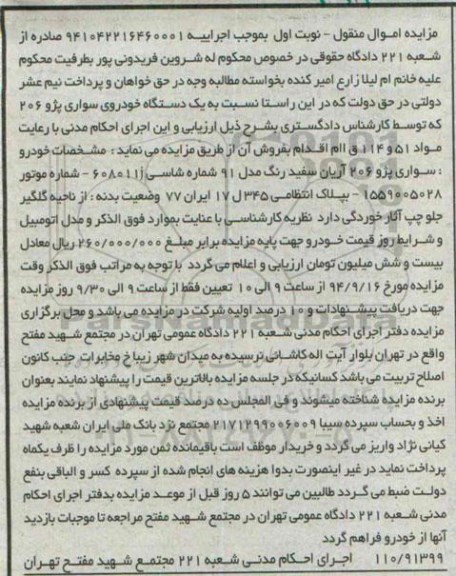 مزایده اموال منقول - نوبت اول بموجب اجراییه ۹۴۱۰۴۲۲۱۶۴۶۰۰۰۱ صادره از
شعبه ۲۲۱ دادگاه حقوقی در خصوص محکوم له شروین فریدونی پور بطرفیت محکوم
علیه خانم ام لیلا زارع امیر کنده بخواسته مطالبه وجه در حق خواهان و پرداخت نیم عشر
دولتی در حق دولت که در این راستا نسبت به یک دستگاه خودروی سواری پژو ۲۰۶
که توسط کارشناس دادگستری بشرح ذیل ارزیابی و این اجرای احکام مدنی با رعایت
مواد ۵۱ و ۱۱۴ ق اام اقدام بفروش آن از طریق مزایده می نماید : مشخصات خودرو
: سواری پژو ۲۰۶ آریان سفید رنگ مدل ۹۱ شماره شاسی ۶۰۸۰۱۱j - شماره موتور
۱۵۵۹۰۰۵۰۲۸ - بپلاک انتظامی ۳۴۵ ل ۱۷ ایران ۷۷ وضعیت بدنه : از ناحیه گلگیر
جلو چپ آثار خوردگی دارد نظریه کارشناسی با عنایت بموارد فوق الذکر و مدل اتومبیل
و شرایط روز قیمت خودرو جهت پایه مزایده برابر مبلغ ۲۶۰/۰۰۰/۰۰۰ ریال معادل
بیست و شش میلیون تومان ارزیابی و اعلام می گردد با توجه به مراتب فوق الذکر وقت
مزایده مورخ ۹۴/۹/۱۶ از ساعت ۹ الی ۱۰ تعیین فقط از ساعت ۹ الی ۹/۳۰ روز مزایده
جهت دریافت پیشنهادات و ۱۰ درصد اولیه شرکت در مزایده می باشد و محل برگزاری
مزایده دفتر اجرای احکام مدنی شعبه ۲۲۱ دادگاه عمومی تهران در مجتمع شهید مفتح
واقع در تهران بلوار آیت اله کاشانی نرسیده به میدان شهر زیبا خ مخابرات جنب کانون
اصلاح تربیت می باشد کسانیکه در جلسه مزایده بالاترین قیمت را پیشنهاد نمایند بعنوان
برنده مزایده شناخته میشوند و فی المجلس ده درصد قیمت پیشنهادی از برنده مزایده
اخذ و بحساب سپرده سیبا ۲۱۷۱۲۹۹۰۰۶۰۰۹ مجتمع نزد بانک ملی ایران شعبه شهید
کیانی نژاد واریز می گردد و خریدار موظف است باقیمانده ثمن مورد مزایده را ظرف یکماه
پرداخت نماید در غیر اینصورت بدوا هزینه های انجام شده از سپرده کسر و الباقی بنفع
دولت ضبط می گردد طالبین می توانند ۵ روز قبل از موعد مزایده بدفتر اجرای احکام
مدنی شعبه ۲۲۱ دادگاه عمومی تهران در مجتمع شهید مفتح مراجعه تا موجبات بازدید
آنها از خودرو فراهم گردد
۱۱۰/۹۱۳۹۹ اجرای احکام مدنی شعبه ۲۲۱ مجتمع شهید مفتح تهران